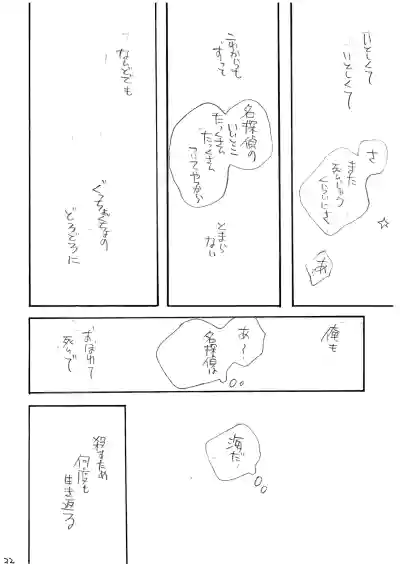 いとしくて
いとしくて
さ
また
くらいにさ
☆
あ
これからも
ずって
名探偵の
いいとこ
たっくさん
たっくさん
とまら
ない
なんどでも
ぐっちゃぐちゃの
どろどろに
俺も
あ〜
名探偵は
おぼれて
死んで
海だ
殺すため
何度も
生き返る
33